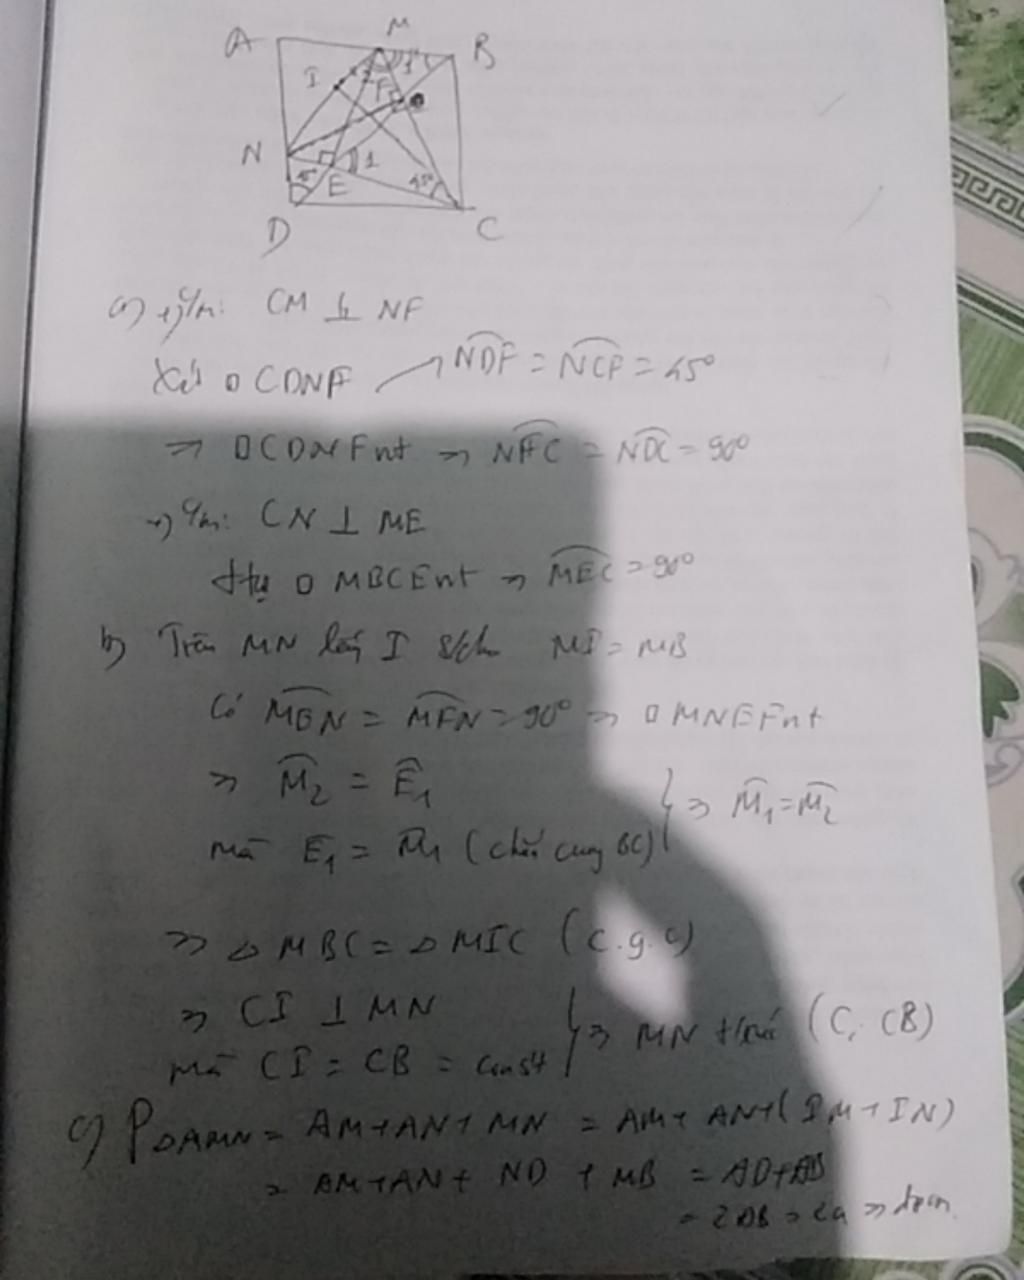 A M B
I 2 1
F
N 1
45° E 45°
D C
a) +) c/m: CM ⊥ NF
Xét □ CDNF → NDF = NCF = 45°
=> □ CDNF nt => NFC = NDC = 90°
+) c/m: CN ⊥ ME
□ MBCE nt => MEC = 90°
b) Trên MN lấy I s/cho MI = MB
Có MEN = MFN = 90° => □ MNEF nt
=> M̂2 = Ê1
mà Ê1 = M̂1 (chắn cung BC) } => M̂1 = M̂2
=> △ MBC = △ MIC (c.g.c)
=> CI ⊥ MN
mà CI = CB = const } => MN t/xúc (C, CB)
c) P△AMN = AM + AN + MN = AM + AN + (IM + IN)
= AM + AN + ND + MB = AD + AB
= 2AB = 2a => đpcm.